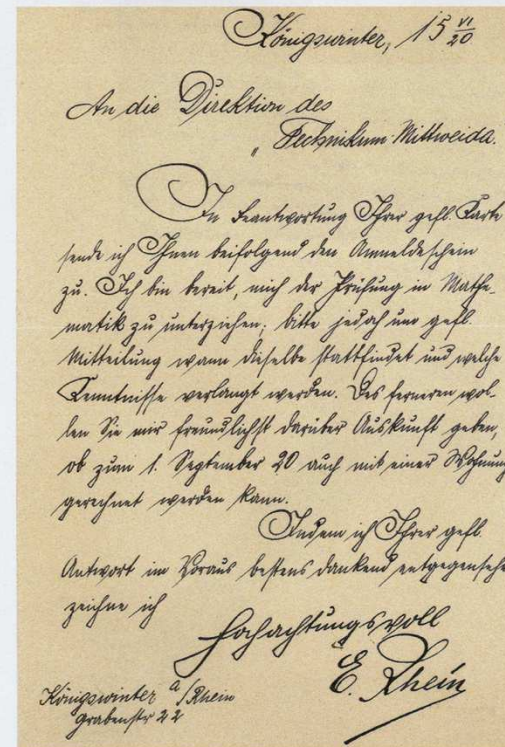 Königswinter, 15 VI/20
An die Direktion des
„ Technikum Mittweida.
In Beantwortung Ihrer gefl. Karte
sende ich Ihnen beifolgend den Anmeldeschein
zu. Ich bin bereit, mich der Prüfung in Mathe-
matik zu unterziehen; bitte jedoch um gefl.
Mitteilung wann dieselbe stattfindet und welche
Kenntnisse verlangt werden. Des ferneren wol-
len Sie mir freundlichst darüber Auskunft geben,
ob zum 1. September 20 auch mit einer Wohnung
gerechnet werden kann.
Indem ich Ihrer gefl.
Antwort im Voraus bestens dankend entgegensehe
zeichne ich
Hochachtungsvoll
E. Rhein
Königswinter a/Rhein
Grabenstr 22